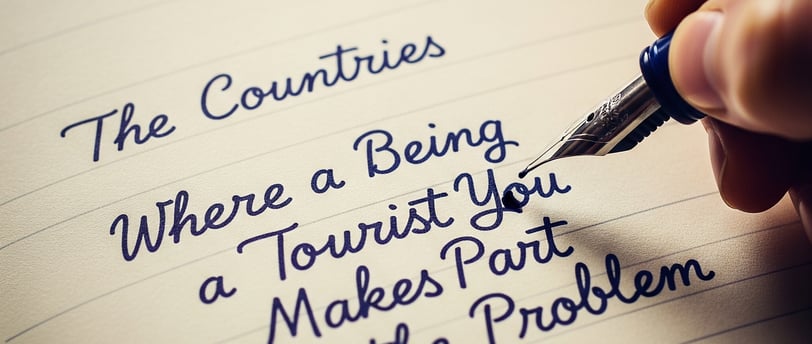 The Countries
Where a Being
a Tourist You
Makes Part
the Problem